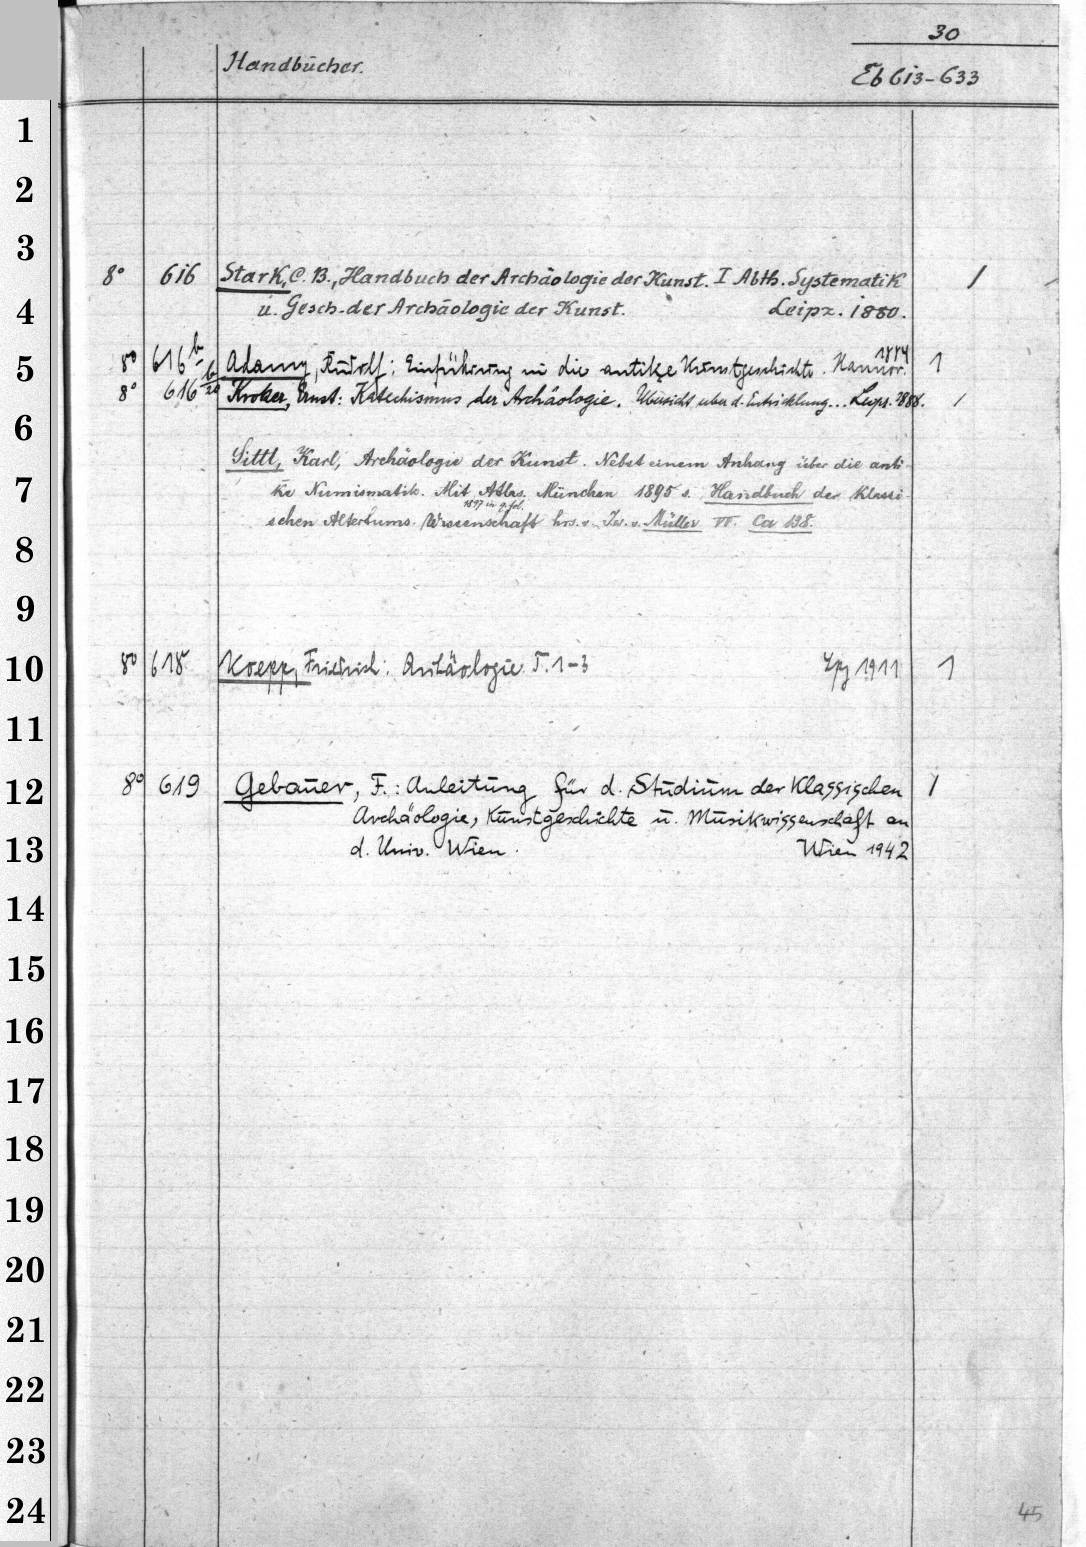 30
Handbücher.
Eb 613-633
1
2
3
8° 616 Stark, C. B., Handbuch der Archäologie der Kunst. I Abth. Systematik 1
4
u. Gesch. der Archäologie der Kunst. Leipz. 1880.
1884
5
8° 616 b Adamy, Rudolf: Einführung in die antike Kunstgeschichte. Hannov. 1
8° 616 b/20 Kroker, Ernst: Katechismus der Archäologie. Übersicht über d. Entwicklung... Leipz. 1888. 1
6
Sittl, Karl, Archäologie der Kunst. Nebst einem Anhang über die anti-
7
ke Numismatik. Mit Atlas. München 1895 s. Handbuch der klassi-
1897 in g. fol.
schen Altertums-Wissenschaft hrs. v. Iw. v. Müller VI. Ca 198.
8
9
10
8° 618 Koepp, Friedrich: Archäologie. T. 1-3 Lpz 1911 1
11
12
8° 619 Gebauer, F.: Anleitung für d. Studium der Klassischen 1
Archäologie, Kunstgeschichte u. Musikwissenschaft an
13
d. Univ. Wien. Wien 1942
14
15
16
17
18
19
20
21
22
23
24
45